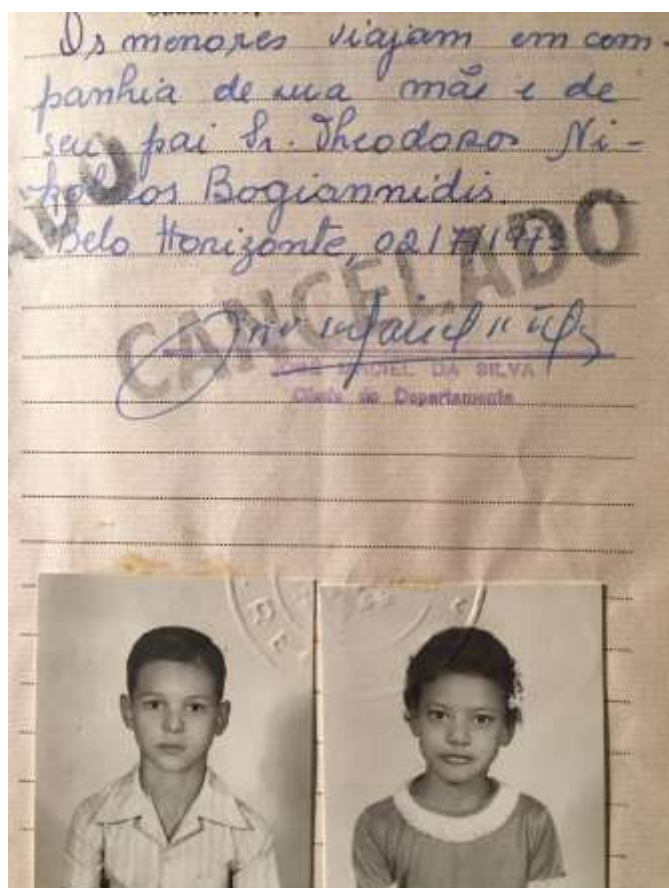 Os menores viajam em com-
panhia de sua mãe e de
seu pai Sr. Theodoros Ni-
kolaos Bogiannidis.
Belo Horizonte, 02/7/1973
CANCELADO
JOSÉ MACIEL DA SILVA
Chefe do Departamento